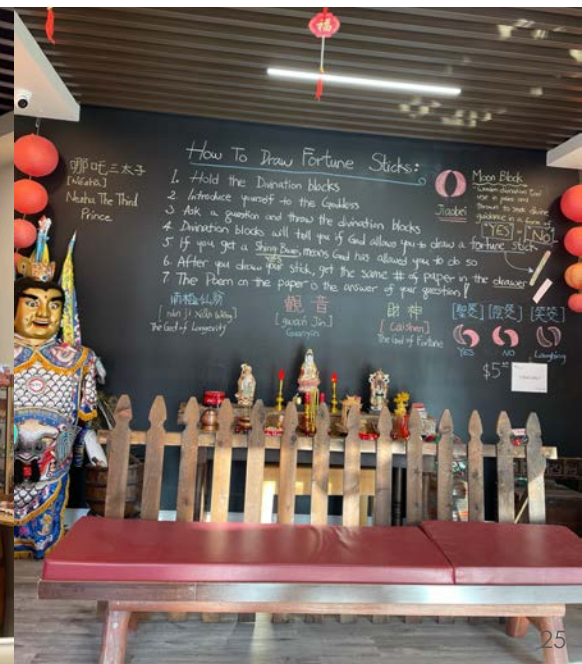 福
哪吒三太子
[Nézhā]
Nezha The Third
Prince
How To Draw Fortune Sticks:
1. Hold the Divination blocks
2. Introduce yourself to the Goddess
3. Ask a question and throw the divination blocks
4. Divination blocks will tell you if God allows you to draw a fortune stick
5. If you get a Shing Buei, means God has allowed you to do so
YES
6. After you draw your stick, get the same # of paper in the drawer
7. The Poem on the paper is the answer of your question!
Moon Block
Jiaobei
Wooden divination tool
use in pairs and
thrown to seek divine
guidance in a form of
"YES" "NO"
[nán jí xiān wēng]
The God of Longevity
觀音
[gwan Jin]
Guanyin
財神
[Caishen]
The God of Fortune
YES
NO
Laughing
$5
25